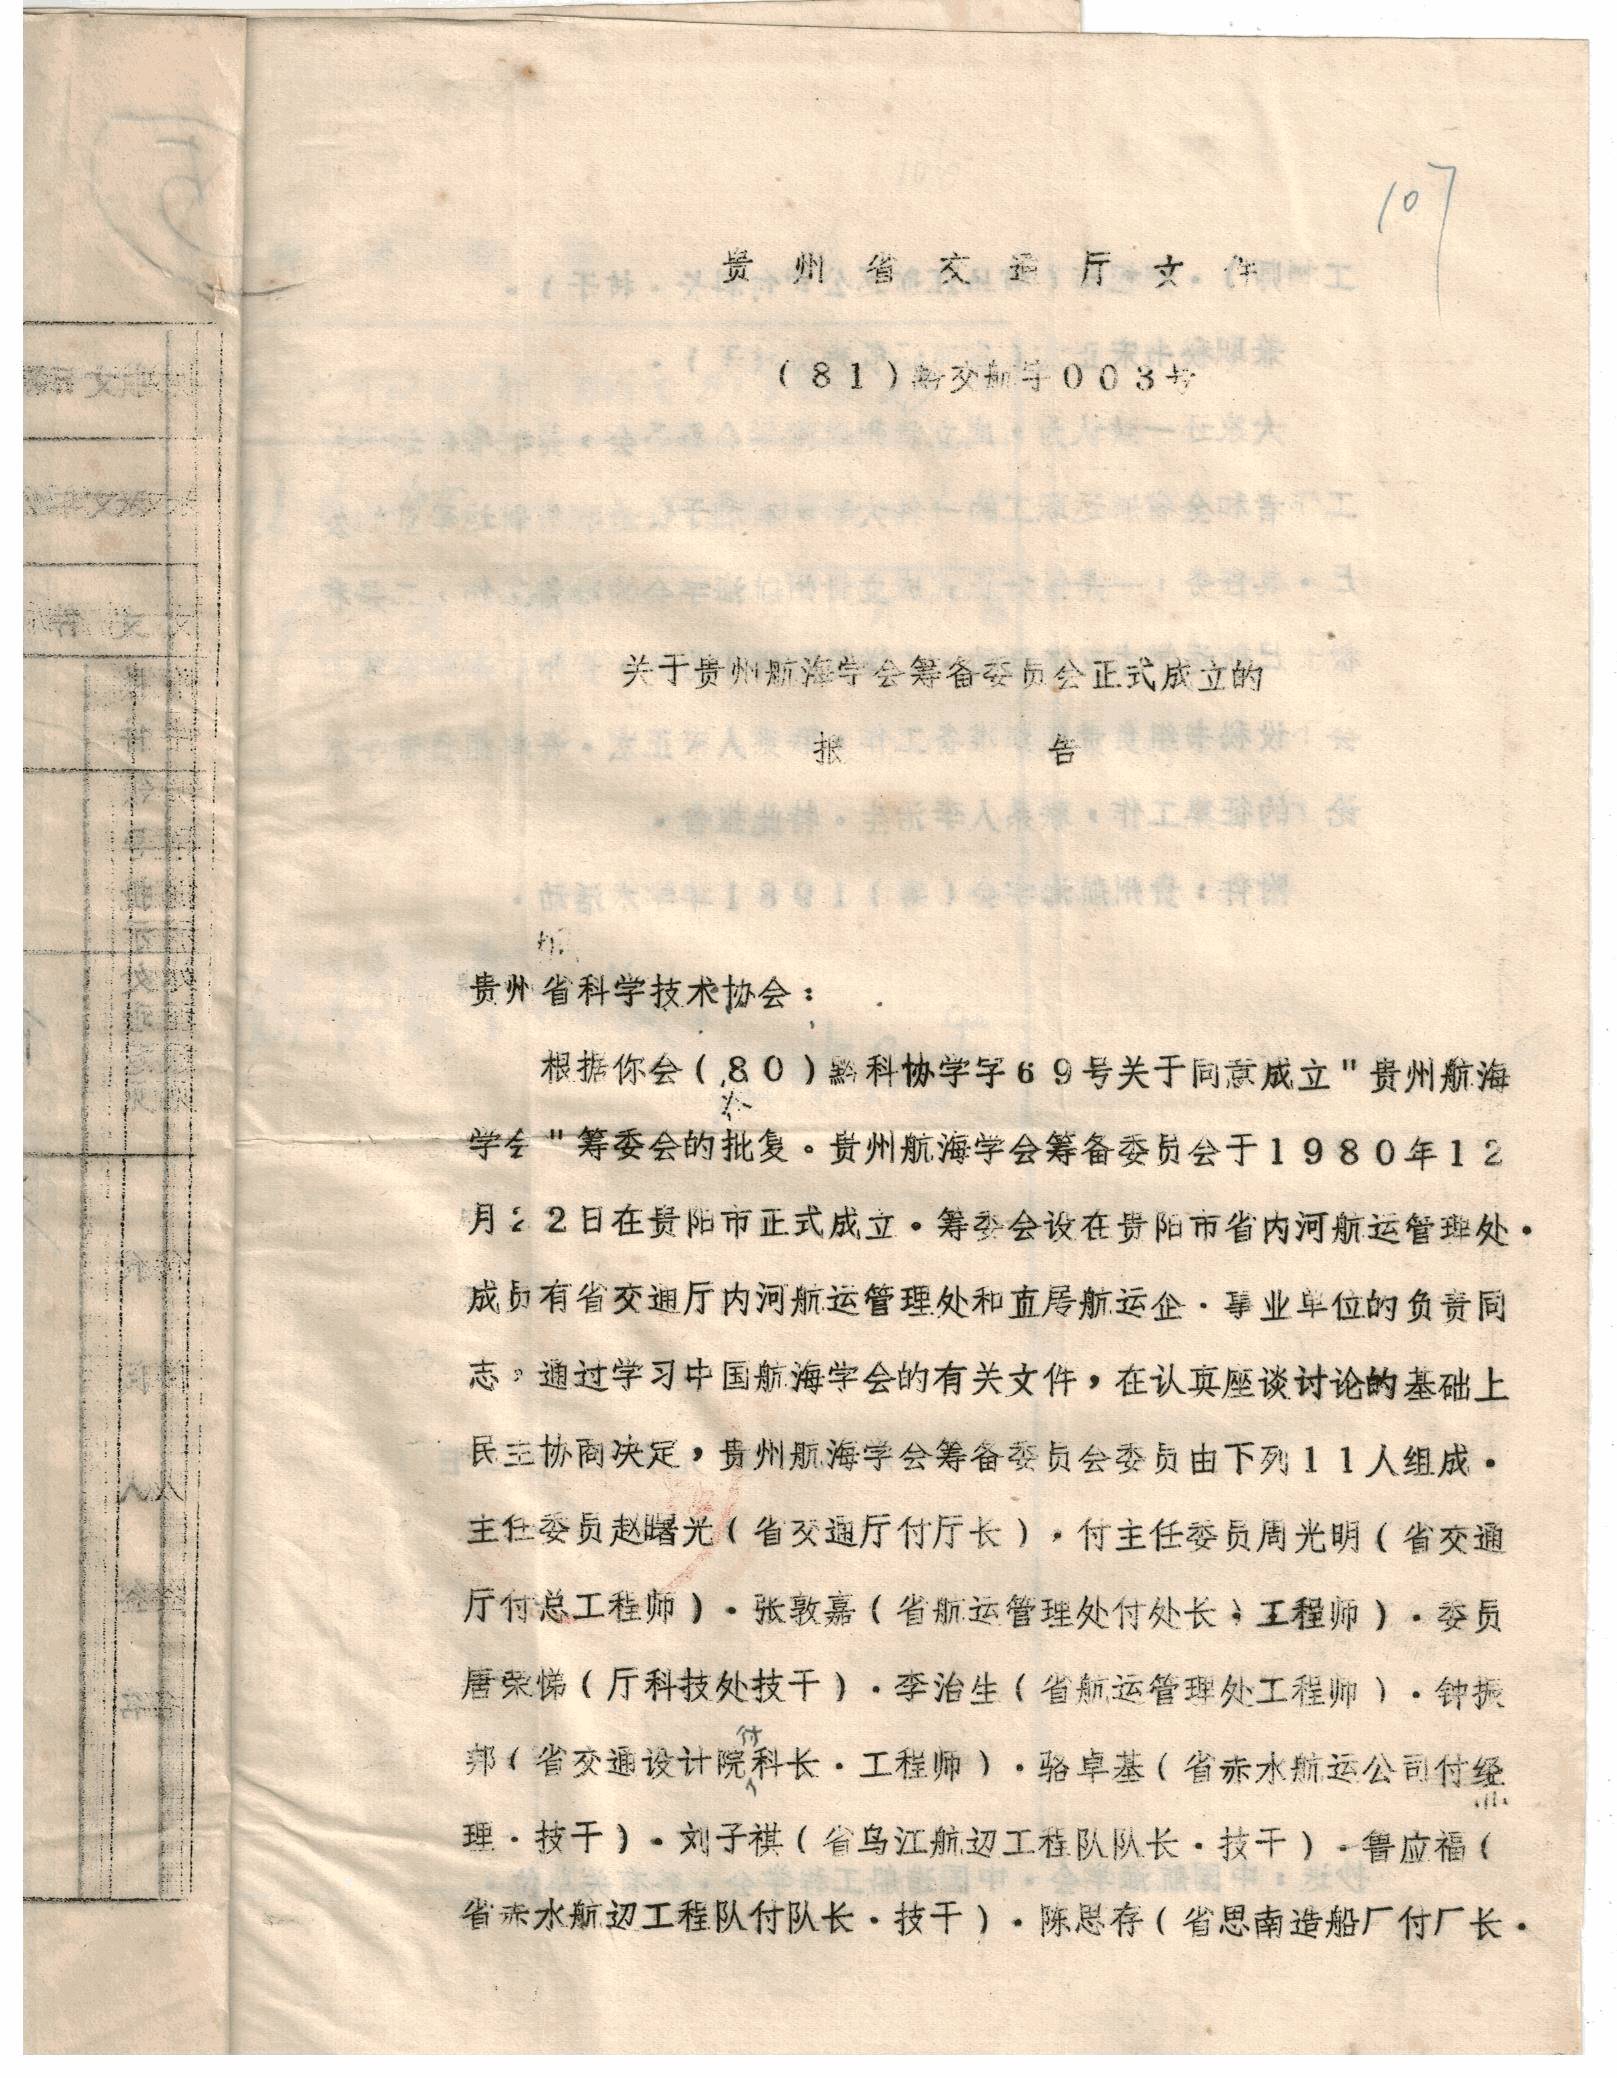 107
贵州省交通厅文件
(81)黔交航字003号
关于贵州航海学会筹备委员会正式成立的
报告
贵州省科学技术协会:
根据你会(80)黔科协学字69号关于同意成立"贵州航海
学会"筹委会的批复。贵州航海学会筹备委员会于1980年12
月22日在贵阳市正式成立。筹委会设在贵阳市省内河航运管理处。
成员有省交通厅内河航运管理处和直属航运企·事业单位的负责同
志。通过学习中国航海学会的有关文件,在认真座谈讨论的基础上
民主协商决定,贵州航海学会筹备委员会委员由下列11人组成。
主任委员赵曙光(省交通厅付厅长)·付主任委员周光明(省交通
厅付总工程师)·张敦嘉(省航运管理处付处长·工程师)·委员
唐荣悌(厅科技处技干)·李治生(省航运管理处工程师)·钟振
邦(省交通设计院付科长·工程师)·骆卓基(省赤水航运公司付经
理·技干)·刘子祺(省乌江航边工程队队长·技干)·鲁应福(
省赤水航边工程队付队长·技干)·陈思存(省思南造船厂付厂长·